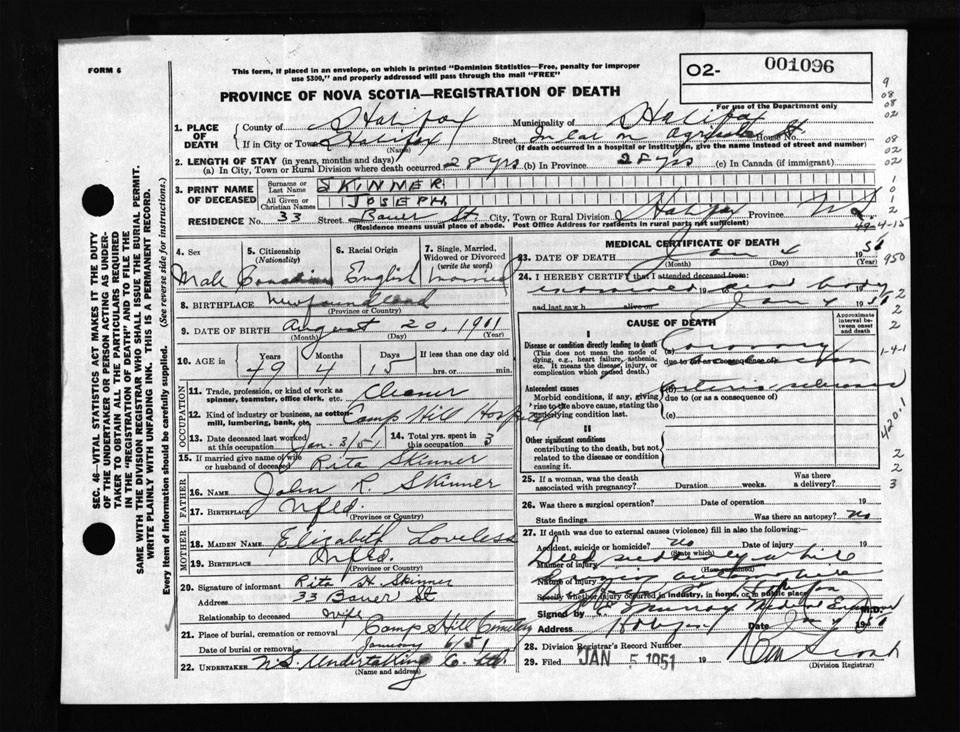 FORM 6
This form, if placed in an envelope, on which is printed "Dominion Statistics—Free, penalty for improper
use $300," and properly addressed will pass through the mail "FREE"
PROVINCE OF NOVA SCOTIA—REGISTRATION OF DEATH
O2- 001096
For use of the Department only
1. PLACE OF DEATH
County of Halifax Municipality of Halifax
If in City or Town Halifax Street In car on St. House No.
(Name) (If death occurred in a hospital or institution, give the name instead of street and number)
2. LENGTH OF STAY (in years, months and days)
(a) In City, Town or Rural Division where death occurred 28 yrs (b) In Province 28 yrs (c) In Canada (if immigrant)
3. PRINT NAME OF DECEASED
Surname or Last Name SKINNER
All Given or Christian Names JOSEPH
RESIDENCE No. 33 Street Bauer St. City, Town or Rural Division Halifax Province N.S.
(Residence means usual place of abode. Post Office Address for residents in rural parts not sufficient)
4. Sex 5. Citizenship (Nationality) 6. Racial Origin 7. Single, Married, Widowed or Divorced (write the word)
Male Canadian English married
8. BIRTHPLACE Newfoundland
(Province or Country)
9. DATE OF BIRTH August 20, 1901
(Month) (Day)
10. AGE in Years Months Days If less than one day old
49 4 15 hrs. or min.
OCCUPATION
11. Trade, profession, or kind of work as spinner, teamster, office clerk, etc. Cleaner
12. Kind of industry or business, as cotton-mill, lumbering, bank, etc. Camp Hill Hospital
13. Date deceased last worked at this occupation Jan. 3/51 14. Total yrs. spent in this occupation 3
15. If married give name of wife or husband of deceased Rita Skinner
FATHER
16. NAME John R. Skinner
17. BIRTHPLACE Nfld.
(Province or Country)
MOTHER
18. MAIDEN NAME Elizabeth Loveless
19. BIRTHPLACE Nfld.
(Province or Country)
20. Signature of informant Rita H. Skinner
Address 33 Bauer St
Relationship to deceased Wife
21. Place of burial, cremation or removal Camp Hill Cemetery
Date of burial or removal January 6/51
22. UNDERTAKER N.S. Undertaking Co. Ltd.
(Name and address)
MEDICAL CERTIFICATE OF DEATH
23. DATE OF DEATH Jan 4 1951
(Month) (Day)
24. I HEREBY CERTIFY that I attended deceased from
examined dead body 19
and last saw h alive on Jan 4 1951
CAUSE OF DEATH
Approximate interval between onset and death
I
Disease or condition directly leading to death (a) Coronary
(This does not mean the mode of dying, e.g., heart failure, asthenia, etc. It means the disease, injury, or complication which caused death.)
due to (or as a consequence of)
Antecedent causes (b) arteriosclerosis
Morbid conditions, if any, giving rise to the above cause, stating the underlying condition last.
due to (or as a consequence of)
(c)
II
Other significant conditions contributing to the death, but not related to the disease or condition causing it.
25. If a woman, was the death associated with pregnancy? Duration weeks. Was there a delivery?
26. Was there a surgical operation? Date of operation 19
State findings Was there an autopsy? no
27. If death was due to external causes (violence) fill in also the following:—
Accident, suicide or homicide? No Date of injury 19
(State which)
Manner of injury died suddenly while
(How sustained)
Nature of injury driving automobile
Specify whether injury occurred in industry, in home, or in public place
Signed by Murray Medical Examiner M.D.
Address Halifax Date Jan 4 1951
28. Division Registrar's Record Number
29. Filed JAN 5 1951 19
(Division Registrar)
SEC. 46—VITAL STATISTICS ACT MAKES IT THE DUTY
OF THE UNDERTAKER OR PERSON ACTING AS UNDER-
TAKER TO OBTAIN ALL THE PARTICULARS REQUIRED
IN THE "REGISTRATION OF DEATH" AND TO FILE THE
SAME WITH THE DIVISION REGISTRAR WHO SHALL ISSUE THE BURIAL PERMIT.
WRITE PLAINLY WITH UNFADING INK. THIS IS A PERMANENT RECORD.
Every item of Information should be carefully supplied. (See reverse side for instructions.)
9
08
02
08
02
1
0
1
2
49-4-15
950
2
2
2
1-4-1
420.1
2
2
3